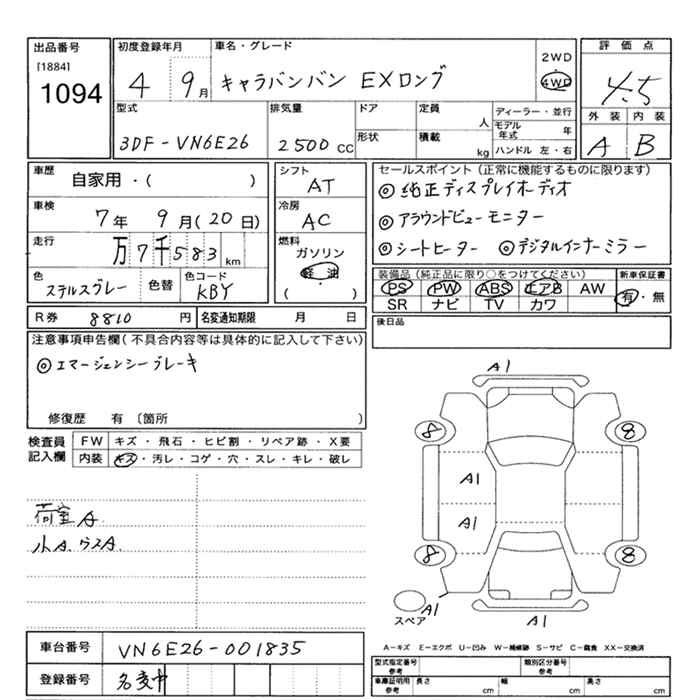 出品番号 初度登録年月 車名・グレード 評価点
[1884]
1094 4 9月 キャラバンバン EXロング 2WD 4WD 4.5
型式 排気量 ドア 定員 人 ディーラー・並行 外装 内装
3DF-VN6E26 2500 CC 形状 積載 kg モデル年式 年 A B
ハンドル 左・右
車歴 自家用・( ) シフト AT セールスポイント(正常に機能するものに限ります)
◎純正ディスプレイオーディオ
車検 7年 9月(20日) 冷房 AC ◎アラウンドビューモニター
走行 万7千583km 燃料 ガソリン ・ 軽油 ( ) ◎シートヒーター ◎デジタルインナーミラー
色 ステルスグレー 色替 色コード KBY 装備品(純正品に限り○をつけてください) 新車保証書
PS PW ABS エアB AW 有・無
SR ナビ TV カワ
R券 8810 円 名変通知期限 月 日 後日品
注意事項申告欄(不具合内容等は具体的に記入して下さい)
◎エマージェンシーブレーキ
修復歴 有 〔箇所 〕
検査員記入欄 FW キズ・飛石・ヒビ割・リペア跡・X要
内装 キズ・汚レ・コゲ・穴・スレ・キレ・破レ
荷室A
小A.ウスA.
A1
8 8
A1
A1
8 8
スペア A1 A1
車台番号 VN6E26-001835
登録番号 名変中
A-キズ E-エクボ U-凹み W-補修跡 S-サビ C-腐食 XX-交換済
型式指定番号 参考 類別区分番号 参考
車庫証明用 参考 長さ cm 幅 cm 高さ cm